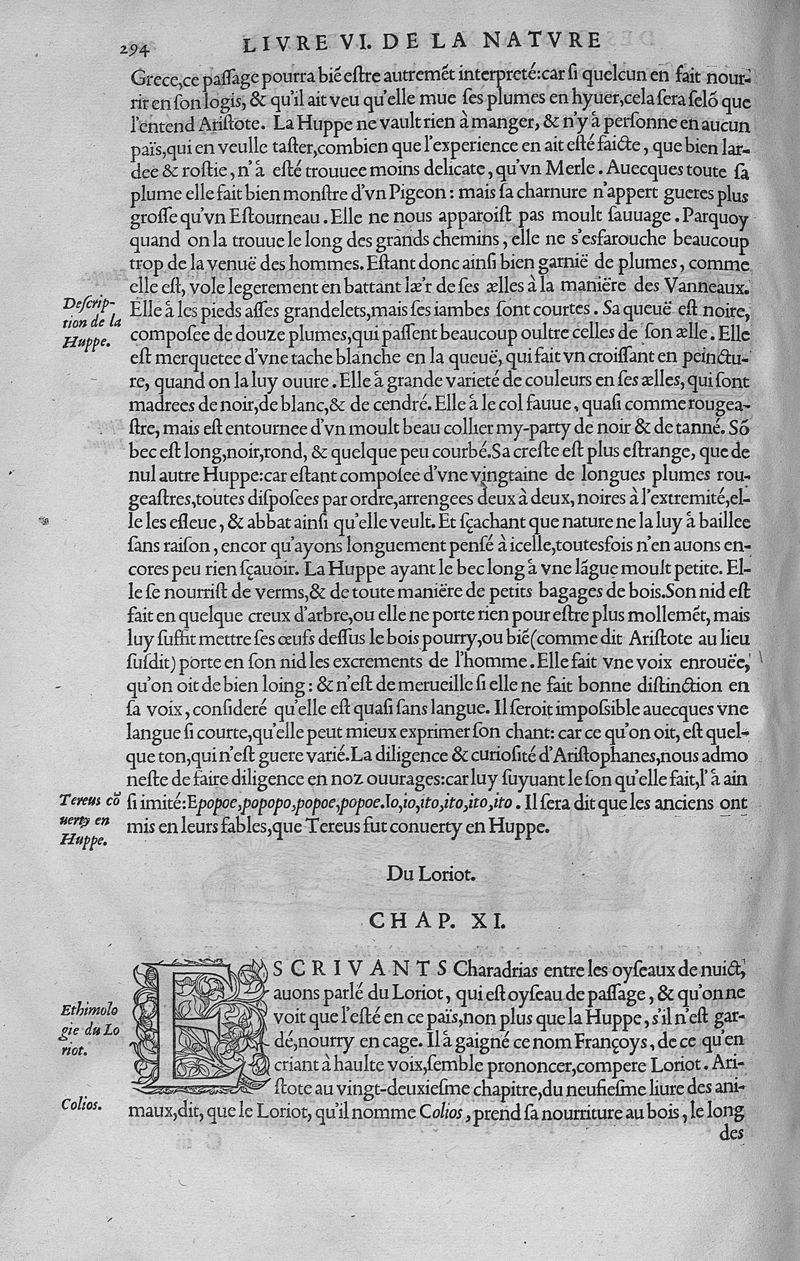 294 LIVRE VI. DE LA NATVRE
Grece,ce paſſage pourra biẽ eſtre autremẽt interpreté:car ſi quelcun en fait nour-
rir en ſon logis, & qu'il ait veu qu'elle mue ſes plumes en hyuer,cela ſera ſelõ que
l'entend Ariſtote. La Huppe ne vault rien à manger, & n'y à perſonne en aucun
païs,qui en veulle taſter,combien que l'experience en ait eſté faicte, que bien lar-
dee & roſtie, n'à eſté trouuee moins delicate, qu'vn Merle. Auecques toute ſa
plume elle fait bien monſtre d'vn Pigeon: mais ſa charnure n'appert gueres plus
groſſe qu'vn Eſtourneau. Elle ne nous apparoiſt pas moult ſauuage. Parquoy
quand on la trouue le long des grands chemins, elle ne s'esfarouche beaucoup
trop de la venuë des hommes. Eſtant donc ainſi bien garnië de plumes, comme
elle eſt, vole legerement en battant læ'r de ſes ælles à la maniëre des Vanneaux.
Deſcrip-
tion de la
Huppe.
Elle à les pieds aſſes grandelets,mais ſes iambes ſont courtes. Sa queuë eſt noire,
compoſee de douze plumes,qui paſſent beaucoup oultre celles de ſon ælle. Elle
eſt merquetee d'vne tache blanche en la queuë, qui fait vn croiſſant en peinctu-
re, quand on la luy ouure. Elle à grande varieté de couleurs en ſes ælles, qui ſont
madrees de noir,de blanc,& de cendré. Elle à le col fauue, quaſi comme rougea-
ſtre, mais eſt entournee d'vn moult beau collier my-party de noir & de tanné. Sõ
bec eſt long,noir,rond, & quelque peu courbé.Sa creſte eſt plus eſtrange, que de
nul autre Huppe:car eſtant compoſee d'vne vingtaine de longues plumes rou-
geaſtres,toutes diſpoſees par ordre,arrengees deux à deux, noires à l'extremité,el-
le les eſleue, & abbat ainſi qu'elle veult. Et ſçachant que nature ne la luy à baillee
ſans raiſon, encor qu'ayons longuement penſé à icelle,toutesfois n'en auons en-
cores peu rien ſçauoir. La Huppe ayant le bec long à vne lãgue moult petite. El-
le ſe nourriſt de verms,& de toute maniëre de petits bagages de bois.Son nid eſt
fait en quelque creux d'arbre,ou elle ne porte rien pour eſtre plus mollemẽt, mais
luy ſuffit mettre ſes œufs deſſus le bois pourry,ou biẽ(comme dit Ariſtote au lieu
ſuſdit) porte en ſon nid les excrements de l'homme. Elle fait vne voix enrouëe,
qu'on oit de bien loing: & n'eſt de merueille ſi elle ne fait bonne diſtinction en
ſa voix, conſideré qu'elle eſt quaſi ſans langue. Il ſeroit impoſsible auecques vne
langue ſi courte,qu'elle peut mieux exprimer ſon chant: car ce qu'on oit, eſt quel-
que ton,qui n'eſt guere varié.La diligence & curioſité d'Ariſtophanes,nous admo
neſte de faire diligence en noz ouurages:car luy ſuyuant le ſon qu'elle fait,l'à ain
Tereus cõ
uerty en
Huppe.
ſi imité:Epopoe,popopo,popoe,popoe.Io,io,ito,ito,ito,ito. Il ſera dit que les anciens ont
mis en leurs fables,que Tereus fut conuerty en Huppe.
Du Loriot.
CHAP. XI.
ESCRIVANTS Charadrias entre les oyſeaux de nuict,
auons parlé du Loriot, qui eſt oyſeau de paſſage, & qu'on ne
Ethimolo
gie du Lo
riot.
voit que l'eſté en ce païs,non plus que la Huppe, s'il n'eſt gar-
dé,nourry en cage. Il à gaigné ce nom Françoys, de ce qu'en
criant à haulte voix,ſemble prononcer, compere Loriot. Ari-
ſtote au vingt-deuxieſme chapitre,du neufieſme liure des ani-
Colios.
maux,dit, que le Loriot, qu'il nomme Colios, prend ſa nourriture au bois, le long
des